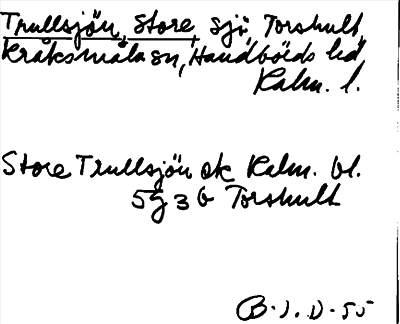 Trullsjön, Store sjö, Torshult,
Kråksmåla sn, Handbörds hd
Kalm. l.
Store Trullsjön ek Kalm. bl.
5g 3b Torshult
B.J.D.55